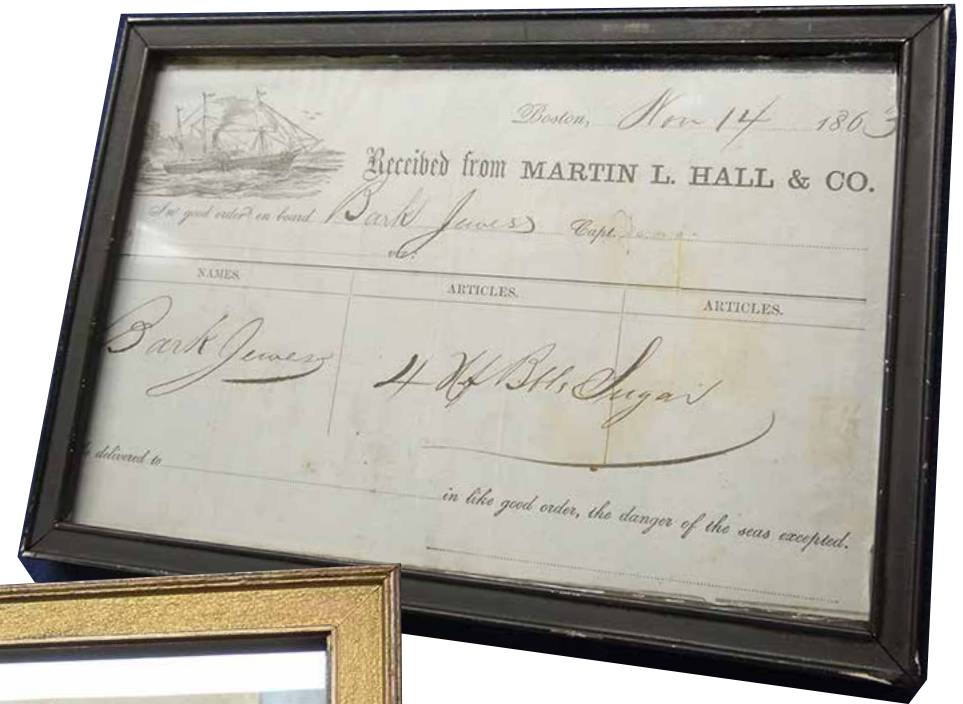 Boston, Nov 14 1863
Received from MARTIN L. HALL & CO.
In good order on board Bark Jewess Capt.
NAMES.
ARTICLES.
ARTICLES.
Bark Jewess
4 Hf Bbls Sugar
delivered to
in like good order, the danger of the seas excepted.